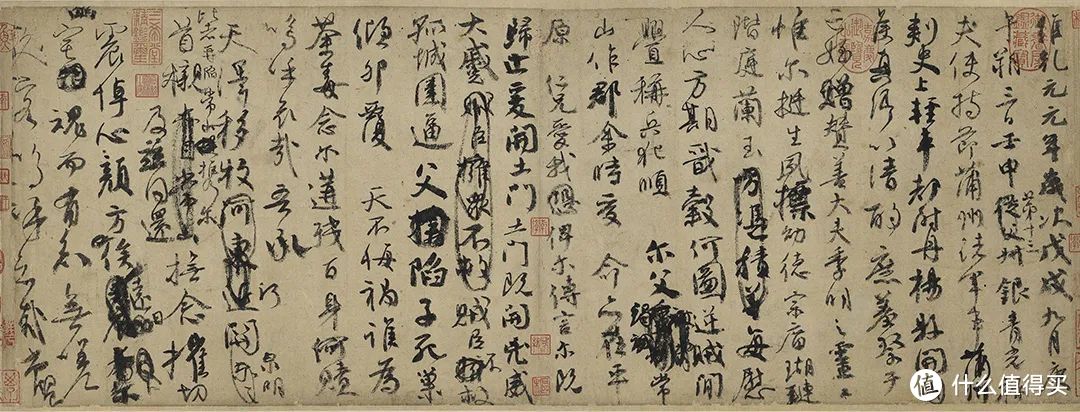 維乾元元年歲次戊戌九月庚
午朔三日壬申第十三叔銀青光祿
夫使持節蒲州諸軍事蒲州
刺史上輕車都尉丹楊縣開國
侯真卿以清酌庶羞祭于
亡姪贈贊善大夫季明之靈曰
惟爾挺生夙標幼德宗廟瑚璉
階庭蘭玉方憑積善每慰
人心方期戩穀何圖逆賊閒
釁稱兵犯順爾父竭誠常
山作郡余時受命亦在平
原仁兄愛我俾爾傳言爾既
歸止爰開土門土門既開凶威
大蹙賊臣擁眾不救賊臣不救
孤城圍逼父陷子死巢
傾卵覆天不悔禍誰為
荼毒念爾遘殘百身何贖
嗚呼哀哉吾承
天澤移牧河東近河關泉明
比者再陷常山攜爾
首櫬及茲同還撫念摧切
震悼心顏方俟遠日
宅魂而有知無嗟
久客嗚呼哀哉尚饗
值 什么值得买